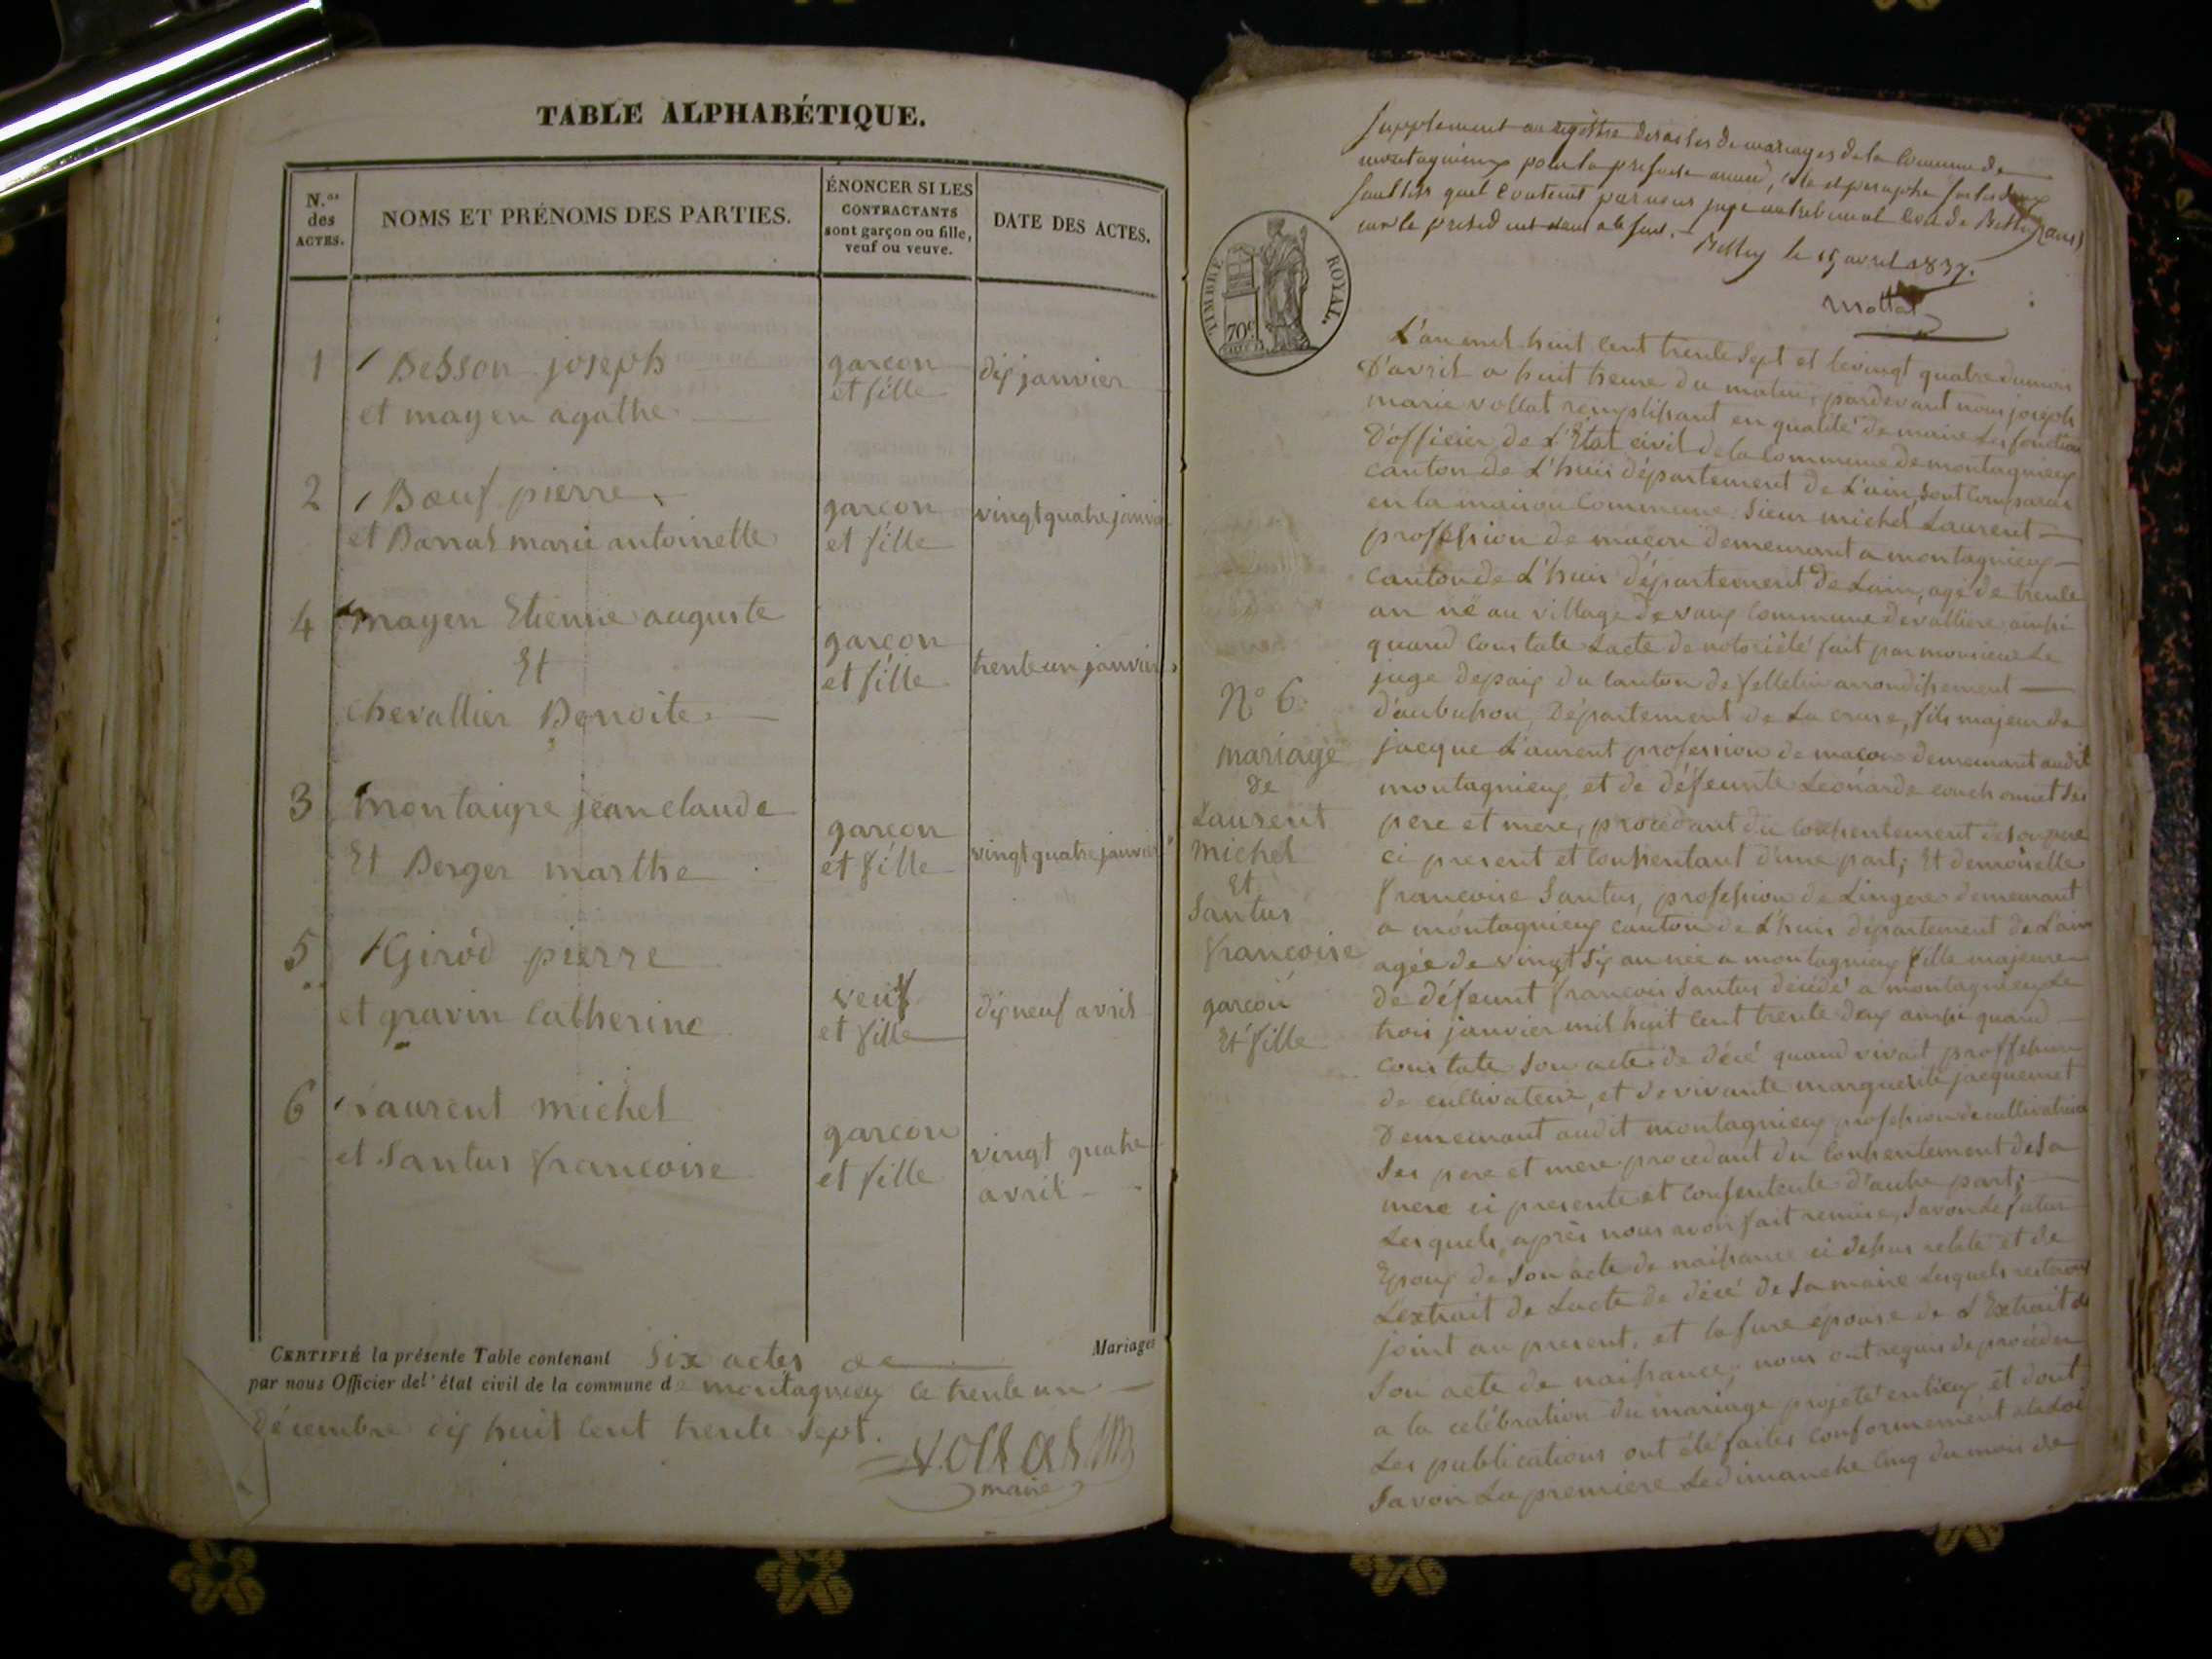 TABLE ALPHABÉTIQUE.
N.os des ACTES.
NOMS ET PRÉNOMS DES PARTIES.
ÉNONCER SI LES CONTRACTANTS sont garçon ou fille, veuf ou veuve.
DATE DES ACTES.
1 Besson joseph garcon dix janvier
et mayen agathe et fille
2 Bœuf pierre garcon vingt quatre janvier
et Barral marie antoinette et fille
4 mayen Etienne auguste garcon trente un janvier
Et et fille
chevallier Benoite
3 montaigre jean claude garcon vingt quatre janvier
Et Berger marthe et fille
5 Girod pierre veuf dix neuf avril
et gravin Catherine et fille
6 Laurent michel garcon vingt quatre
et Santus francoise et fille avril
CERTIFIÉ la présente Table contenant Six actes de Mariages
par nous Officier del'état civil de la commune de montagnieux le trente un
décembre dix huit cent trente sept.
vollat
maire
Supplement au régistre des actes de mariages de la Commune de
montagnieux pour la presente année,
Belley le 15 avril 1837.
Mottet
TIMBRE ROYAL.
70c
L'an mil huit cent trente sept et le vingt quatre du mois
D'avril a huit heure du matin, pardevant nous joseph
marie vollat remplissant en qualité de maire les fonction
D'officier de L'Etat civil de la Commune de montagnieux
canton de L'huis département de L'ain, sont Comparus
en la maison Commune Sieur michel Laurent
profession de maçon demeurant a montagnieux
canton de L'huis département de Lain, agé de trente
an né au village de vaux Commune de valliere ainsi
quand constate Lacte de notoriété fait par monsieur Le
juge de paix du canton de felletin arrondissement
d'aubusson, Département de La cruse, fils majeur de
jacque Laurent profession de macon demeurant audit
montagnieux et de défeunte Leonarde couchonnet Ses
pere et mere, procedant du consentement de son pere
ci present et Consentant d'une part; Et demoiselle
francoise Santus, profession de Lingere demeurant
a montagnieux canton de L'huis département de L'ain
agée de vingt six an née a montagnieux fille majeure
de défeunt francois Santus décédé a montagnieux Le
trois janvier mil huit cent trente deux ainsi quand
constate Son acte de décé quand vivait proffession
de cultivateur, et de vivante marguerite jacquemet
Demeurant audit montagnieux profession de cultivatrice
Ses pere et mere procedant du Consentement de Sa
mere ci presente et consentente d'autre part;
Lesquels, après nous avoir fait remise, Savoir Le futur
Epoux de Son acte de naissance ci dessus relaté et de
Lextrait de Lacte de décé de Sa maire Lesquels resteront
joint au present, et la fure épouse de L'Extrait de
Son acte de naissance, nous ont requis de proceder
a la celébration du mariage projeté entieux et dont
Les publications ont été faites conformement a la Loi
Savoir La premiere Le dimanche Cinq du mois de
N° 6
mariage
de
Laurent
michel
Et
Santus
francoise
garcon
Et fille